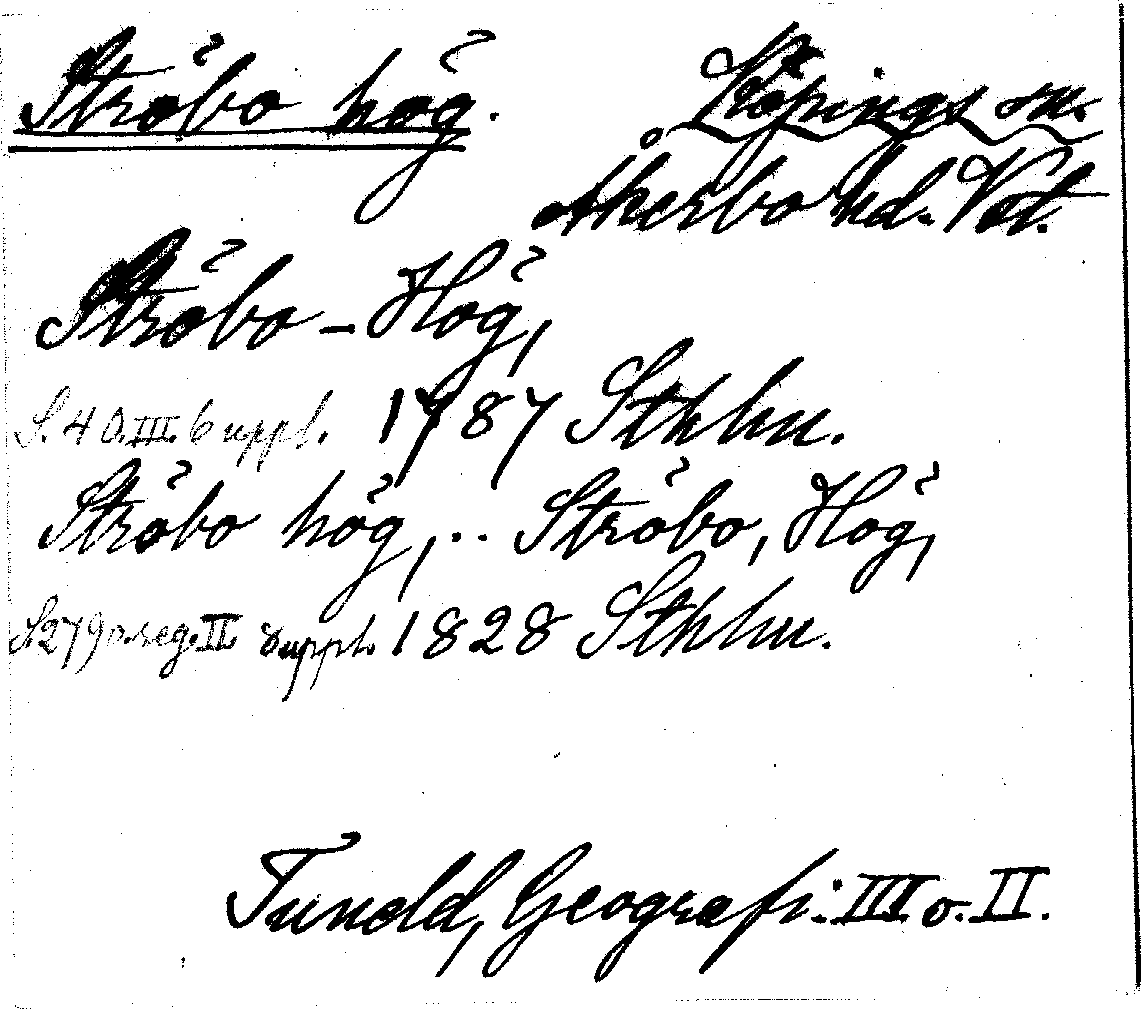 Ströbo hög. Köpings sn.
Åkerbo hd. Vstl.
Ströbo-Hög,
S. 40. III. 6 uppl. 1787 Sthlm.
Ströbo hög, .. Ströbo, Hög,
S. 279 o. reg. II. 8 uppl. 1828 Sthlm.
Tuneld, Geografi. III o. II.